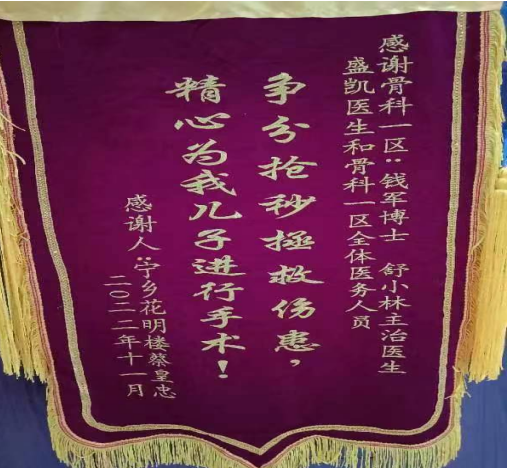 感谢骨科一区：钱军博士　舒小林主治医生
盛凯医生和骨科一区全体医务人员
争分抢秒拯救伤患，
精心为我儿子进行手术！
感谢人：宁乡花明楼蔡皇忠
二〇二二年十一月